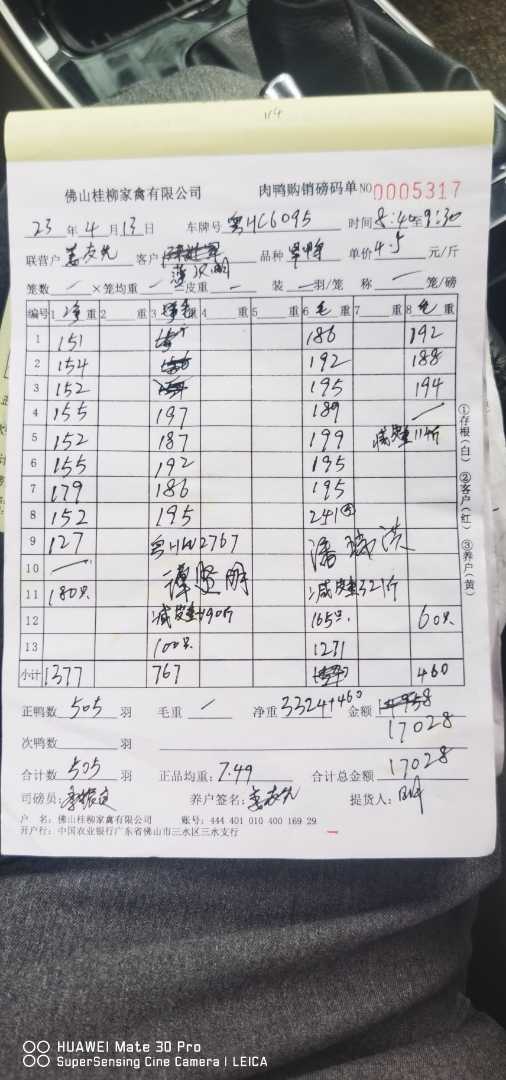 114
佛山桂柳家禽有限公司 肉鸭购销磅码单 NO 0005317
23 年 4 月 13 日 车牌号 粤HC6095 时间 8:40至9:30
联营户 客户 品种 单价 4.5 元/斤
笼数 — ×笼均重 — 皮重 — 装 — 羽/笼 称 — 笼/磅
编号 1 净 重 2 重 3 重 4 重 5 重 6 毛 重 7 重 8 毛 重
1 151 186 192
2 154 192 188
3 152 195 194
4 155 197 189 —
5 152 187 199 减皮重114斤
6 155 192 195
7 179 186 195
8 152 195 241
9 127 粤HW2767
10 —
11 180只 减皮重321斤
12 减皮重190斤 165只 60只
13 100只 1271
小计 1377 767 460
①存根(白) ②客户(红) ③养户(黄)
正鸭数 505 羽 毛重 — 净重 3324+460 金额
17028
次鸭数 羽
合计数 505 羽 正品均重: 7.49 合计总金额 17028
司磅员: 养户签名: 提货人:
户 名: 佛山桂柳家禽有限公司 账号: 444 401 010 400 169 29
开户行: 中国农业银行广东省佛山市三水区三水支行
HUAWEI Mate 30 Pro
SuperSensing Cine Camera | LEICA